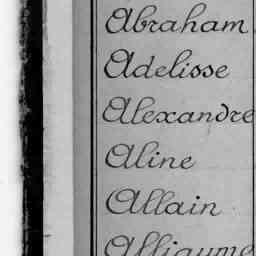 Abraham
Adelisse
Alexandre
Aline
Allain
Alliaume